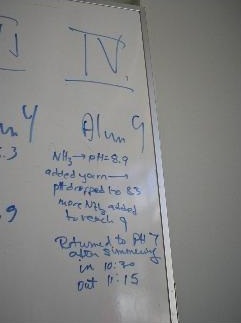 IV.
Alum 9
4
.3
NH3 → pH=8.9
added yarn →
pH dropped to 8.3
more NH3 added
to reach 9
.9
Returned to pH 7
after simmering
in 10:30
out 11:15